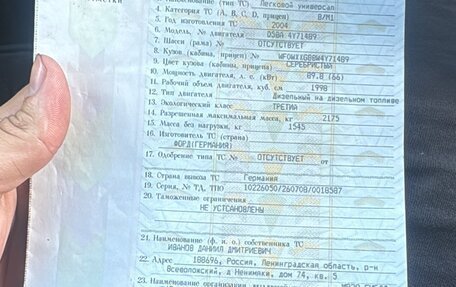 (тип ТС) Легковой универсал
4. Категория ТС (A, B, C, D, прицеп) B/M1
5. Год изготовления ТС 2004
6. Модель, № двигателя D5BA 4Y71489
7. Шасси (рама) № ОТСУТСТВУЕТ
8. Кузов (кабина, прицеп) №
9. Цвет кузова (кабины, прицепа) СЕРЕБРИСТЫЙ
10. Мощность двигателя, л. с. (кВт) 89.8 (66)
11. Рабочий объем двигателя, куб. см 1998
12. Тип двигателя Дизельный на дизельном топливе
13. Экологический класс ТРЕТИЙ
14. Разрешенная максимальная масса, кг 2175
15. Масса без нагрузки, кг 1545
16. Изготовитель ТС (страна)
ФОРД(ГЕРМАНИЯ)
17. Одобрение типа ТС № ОТСУТСТВУЕТ от
18. Страна вывоза ТС Германия
19. Серия, № ТД, ТПО 10226050/260708/0018587
20. Таможенные ограничения
НЕ УСТСАНОВЛЕНЫ
21. Наименование (ф. и. о.) собственника ТС
ИВАНОВ ДАНИИЛ ДМИТРИЕВИЧ
22. Адрес 188696, Россия, Ленинградская область, р-н
Всеволожский, д Ненимяки, дом 74, кв. 5
23. Наименование организации,